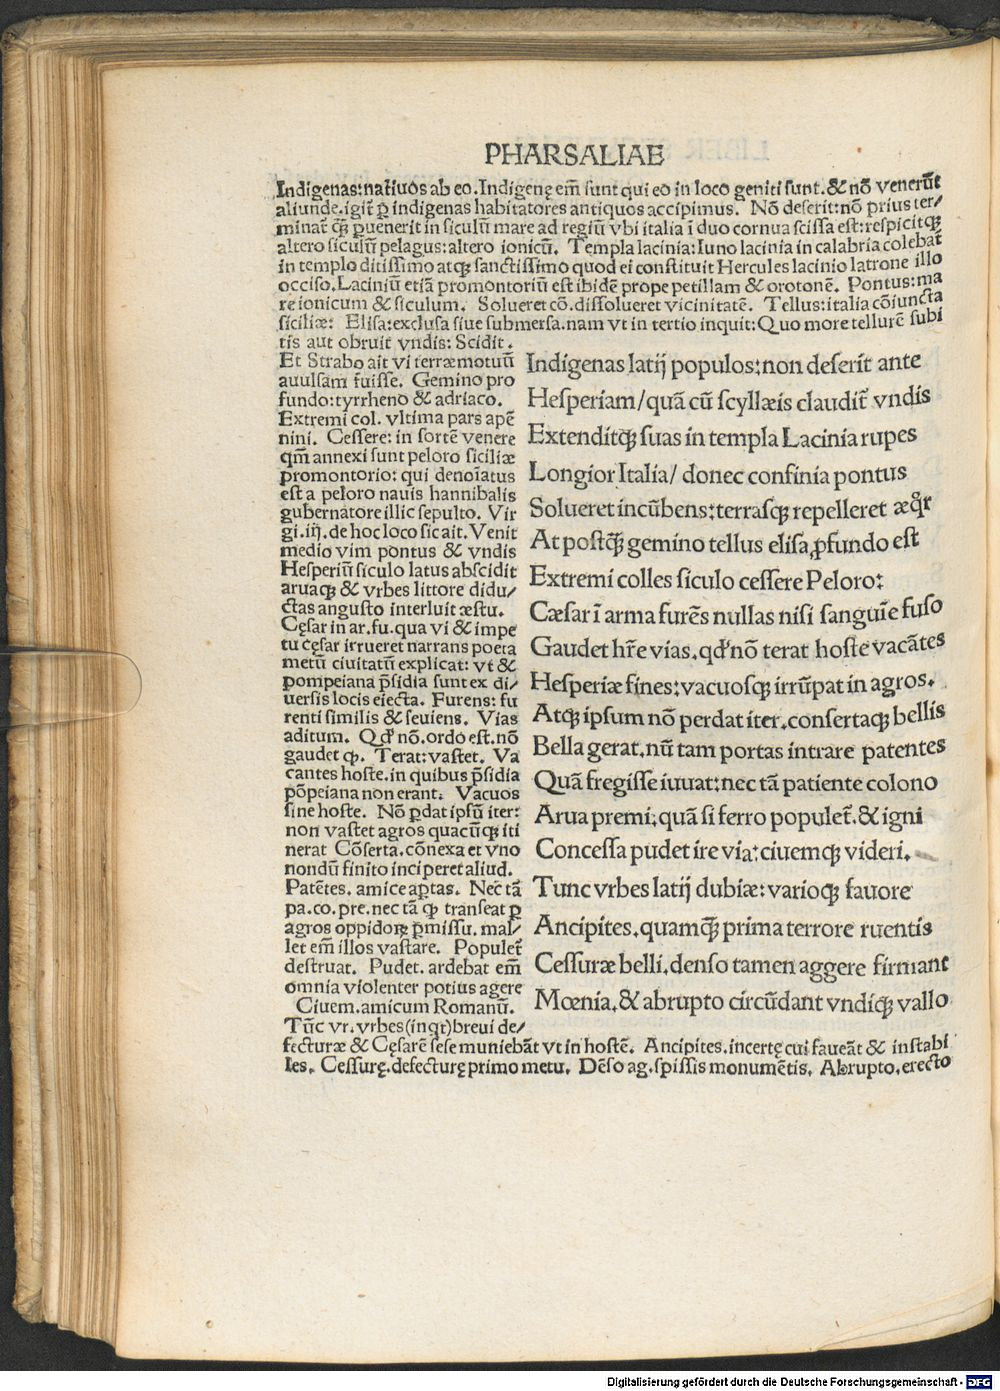 PHARSALIAE
Indigenas: natiuos ab eo. Indigenę em̄ sunt qui eo in loco geniti sunt. & nō venerūt
aliunde. igit̄ ꝑ indigenas habitatores antiquos accipimus. Nō deserit: nō prius ter/
minat̄ qꝫ ꝑuenerit in siculū mare ad regiū vbi italia ī duo cornua scissa est: respicitqꝫ
altero siculū pelagus: altero ionicū. Templa lacinia: Iuno lacinia in calabria colebat̄
in templo ditissimo atqꝫ sanctissimo quod ei constituit Hercules lacinio latrone illo
occiso. Laciniū etiā promontoriū est ibidē prope petillam & orotonē. Pontus: ma
re ionicum & siculum. Solueret cō. dissolueret vicinitatē. Tellus: italia cōiuncta
siciliæ: Elisa: exclusa siue submersa. nam vt in tertio inquit: Quo more tellurē subi
tis aut obruit vndis: Scidit.
Et Strabo ait vi terræmotuū
auulsam fuisse. Gemino pro
fundo: tyrrheno & adriaco.
Extremi col. vltima pars apē
nini. Cessere: in sortē venere
qm̄ annexi sunt peloro siciliæ
promontorio: qui denoīatus
est a peloro nauis hannibalis
gubernatore illic sepulto. Vir
gi. iij. de hoc loco sic ait. Venit
medio vim pontus & vndis
Hesperiū siculo latus abscidit
aruaqꝫ & vrbes littore didu/
ctas angusto interluit æstu.
Cęsar in ar. fu. qua vi & impe
tu cęsar irrueret narrans poeta
metū ciuitatū explicat: vt &
pompeiana p̄sidia sunt ex di/
uersis locis eiecta. Furens: fu
renti similis & seuiens. Vias
aditum. Qd̓ nō. ordo est. nō
gaudet ꝙ. Terat: vastet. Va
cantes hoste. in quibus p̄sidia
pōpeiana non erant. Vacuos
sine hoste. Nō ꝑdat ipsū iter:
non vastet agros quacūqꝫ iti
nerat Cōserta. cōnexa et vno
nondū finito inciperet aliud.
Patētes. amice aꝑtas. Nec tā
pa. co. pre. nec tā ꝙ transeat ꝑ
agros oppidoꝝ ꝑmissu. mal/
let em̄ illos vastare. Populet̄
destruat. Pudet. ardebat em̄
omnia violenter potius agere
Ciuem. amicum Romanū.
Tūc vr. vrbes (inqt) breui de/
Indigenas latij populos: non deserit ante
Hesperiam/ quā cū scyllæis claudit̄ vndis
Extenditqꝫ suas in templa Lacinia rupes
Longior Italia/ donec confinia pontus
Solueret incūbens: terrasqꝫ repelleret æqr̊
At postqꝫ̄ gemino tellus elisa ꝓfundo est
Extremi colles siculo cessere Peloro:
Cæsar ī arma furēs nullas nisi sanguīe fuso
Gaudet hr̄e vias. qd̓ nō terat hoste vacātes
Hesperiæ fines: vacuosqꝫ irrūpat in agros.
Atqꝫ ipsum nō perdat iter. consertaqꝫ bellis
Bella gerat. nū tam portas intrare patentes
Quā fregisse iuuat: nec tā patiente colono
Arua premi. quā si ferro populet̄. & igni
Concessa pudet ire via: ciuemqꝫ videri.
Tunc vrbes latij dubiæ: varioqꝫ fauore
Ancipites. quamqꝫ̄ prima terrore ruentis
Cessuræ belli. denso tamen aggere firmant
Mœnia. & abrupto circūdant vndiqꝫ vallo
fecturæ & Cęsarē sese muniebāt vt in hostē. Ancipites. incertę cui faueāt & instabi
les. Cessurę. defecturę primo metu. Dēso ag. spissis monumētis. Abrupto. erecto
Digitalisierung gefördert durch die Deutsche Forschungsgemeinschaft - DFG